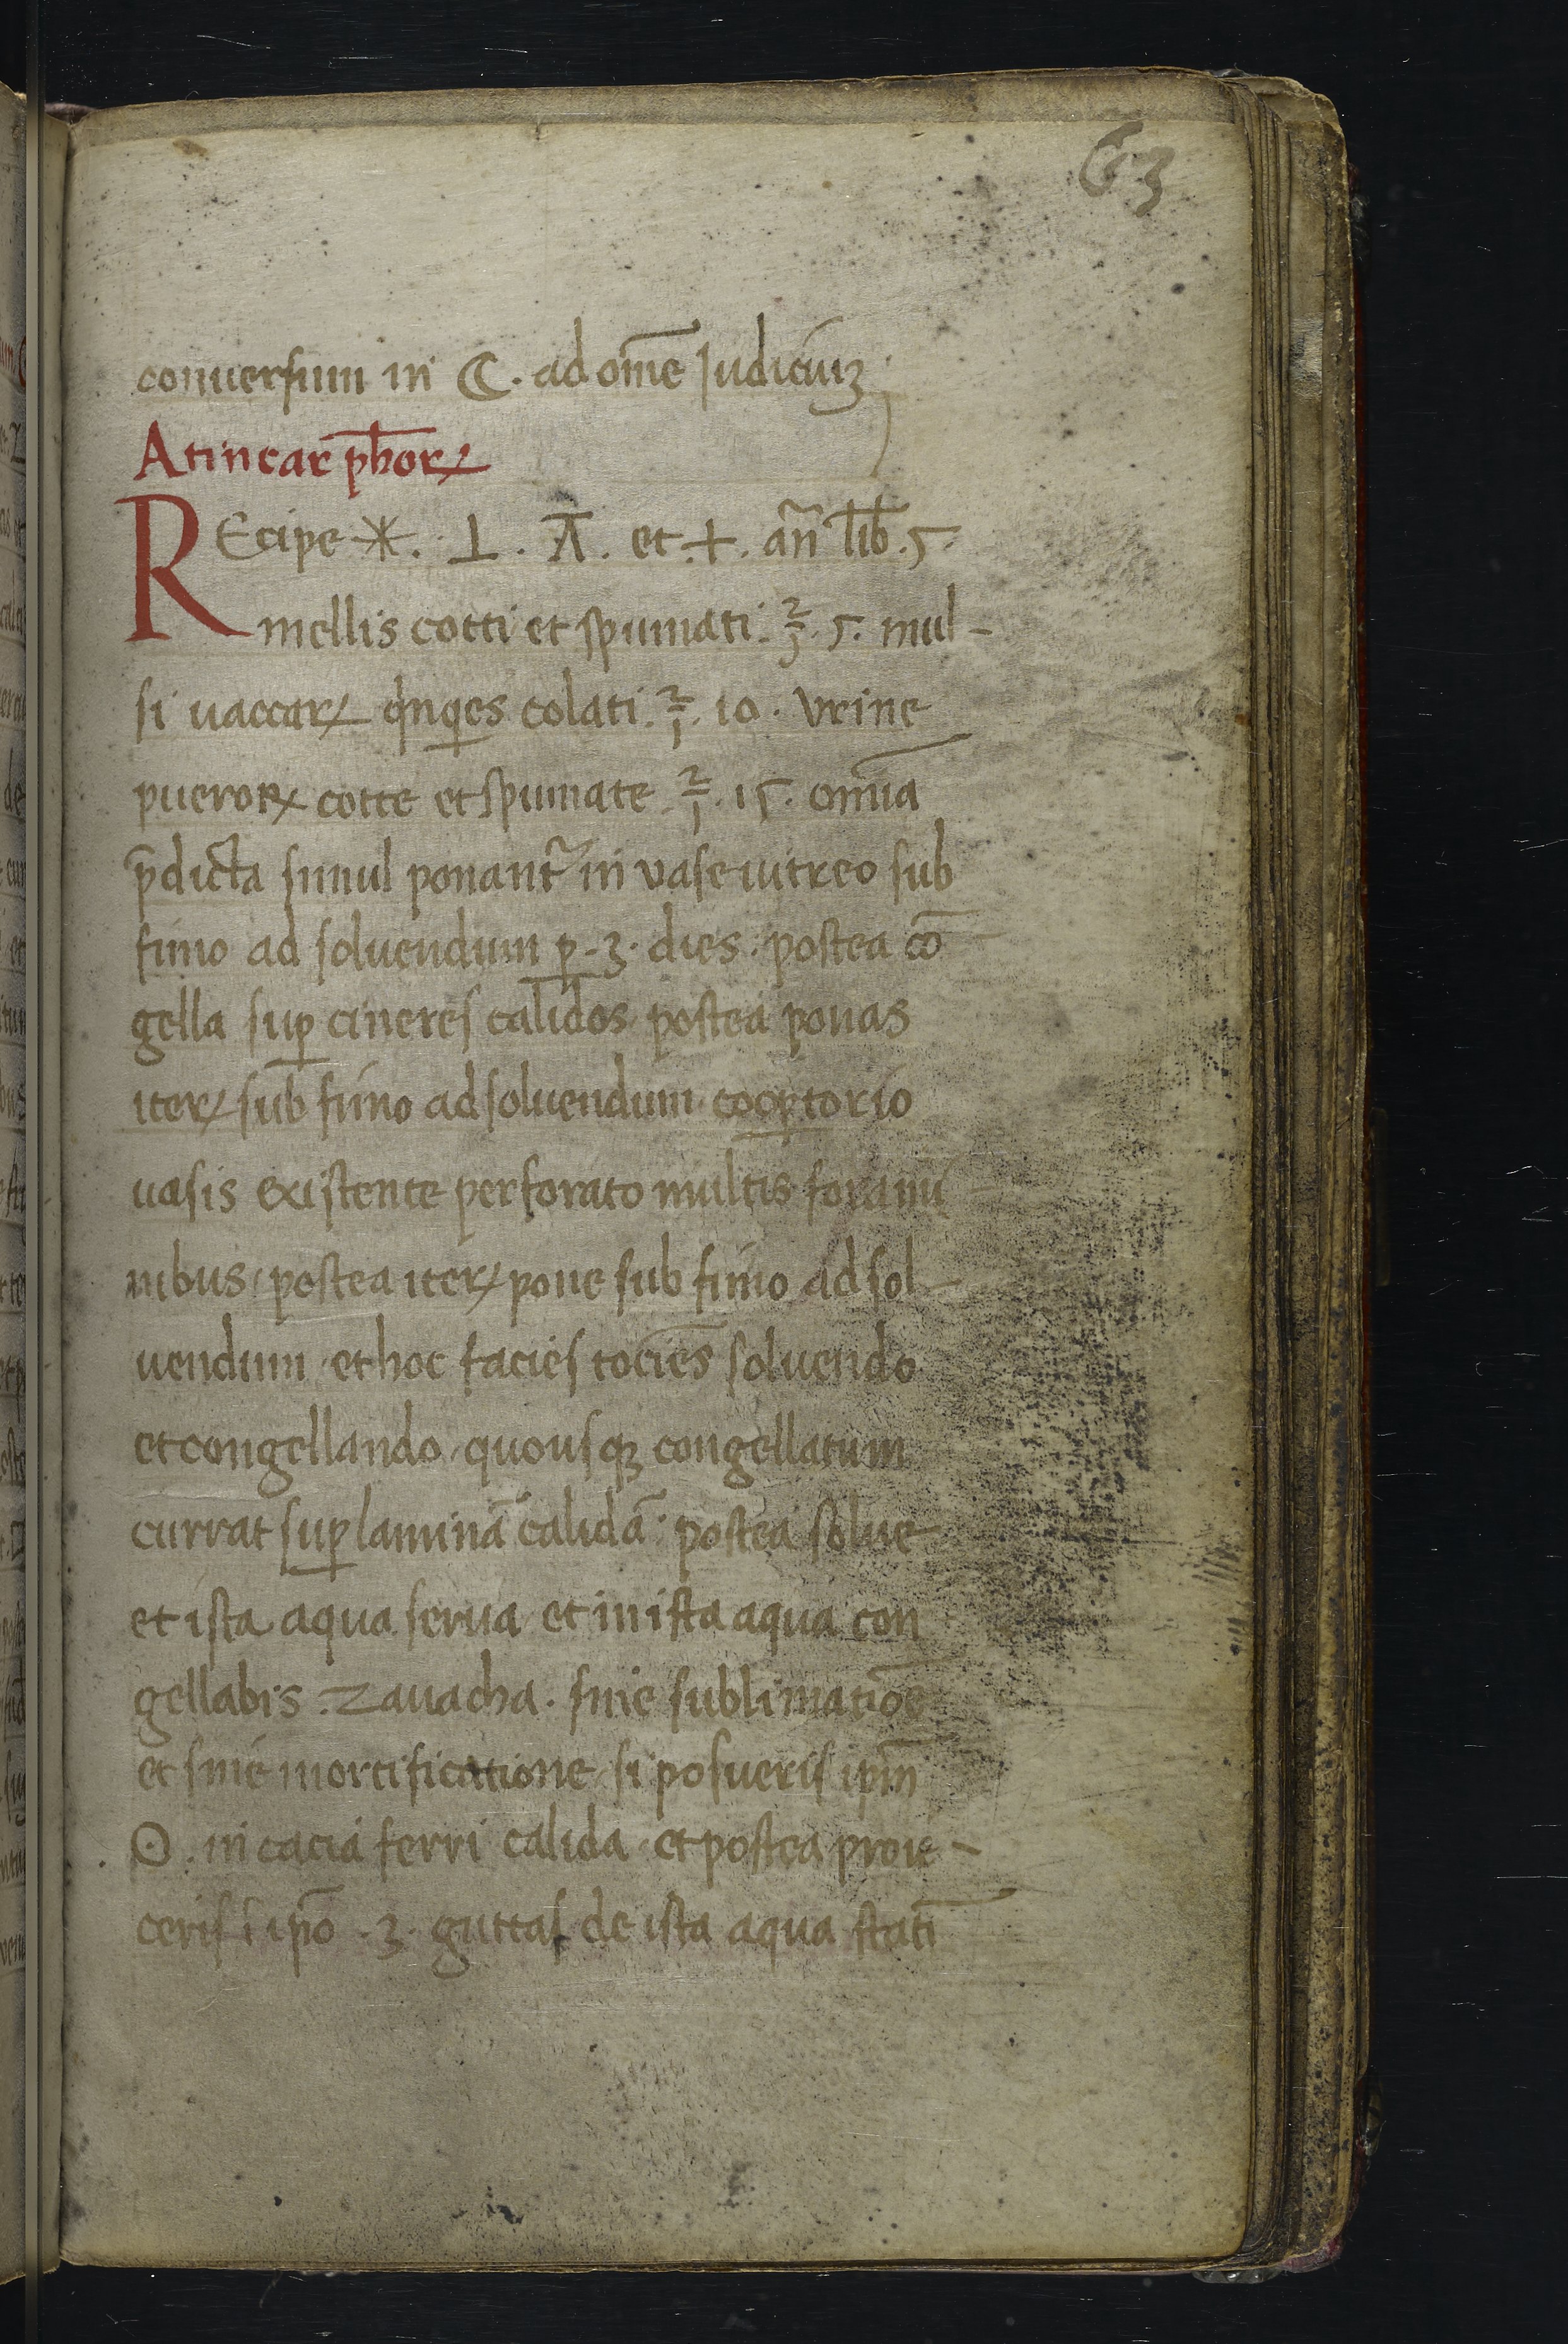 63
conuersum in ☾. ad om̄e Iudiciuꝫ
Atincar ph̄oꝝ
REcipe ✳. ⊥. A̅. et .+. an̄ lib̄. 5.
mellis cotti et spumati. ℥. 5. mul-
si uaccaꝝ qͥnqꝫes colati. ℥. 10. vrine
pueroꝝ cotte et spumate. ℥. 15. om̄ia
p̄dicta simul ponant᷑ in vase uitreo sub
fimo ad soluendum ꝑ .3. dies. postea cō
gella suꝑ cineres calidos. postea ponas
iteꝝ sub fimo ad soluendum cooꝑtorio
uasis existente perforato multis forami
nibus. postea iteꝝ pone sub fimo ad sol-
uendum et hoc facies tociēs soluendo
et congellando quousqꝫ congellatum
currat suꝑ laminā calidā. postea solue
et ista aqua serua et in ista aqua con
gellabis. zauacha. sine sublimatiōe
et sine mortificatione. si posueris ip̄m
☉. in cacia ferri calida et postea proie-
ceris ī ip̄o .3. guttas de ista aqua statī